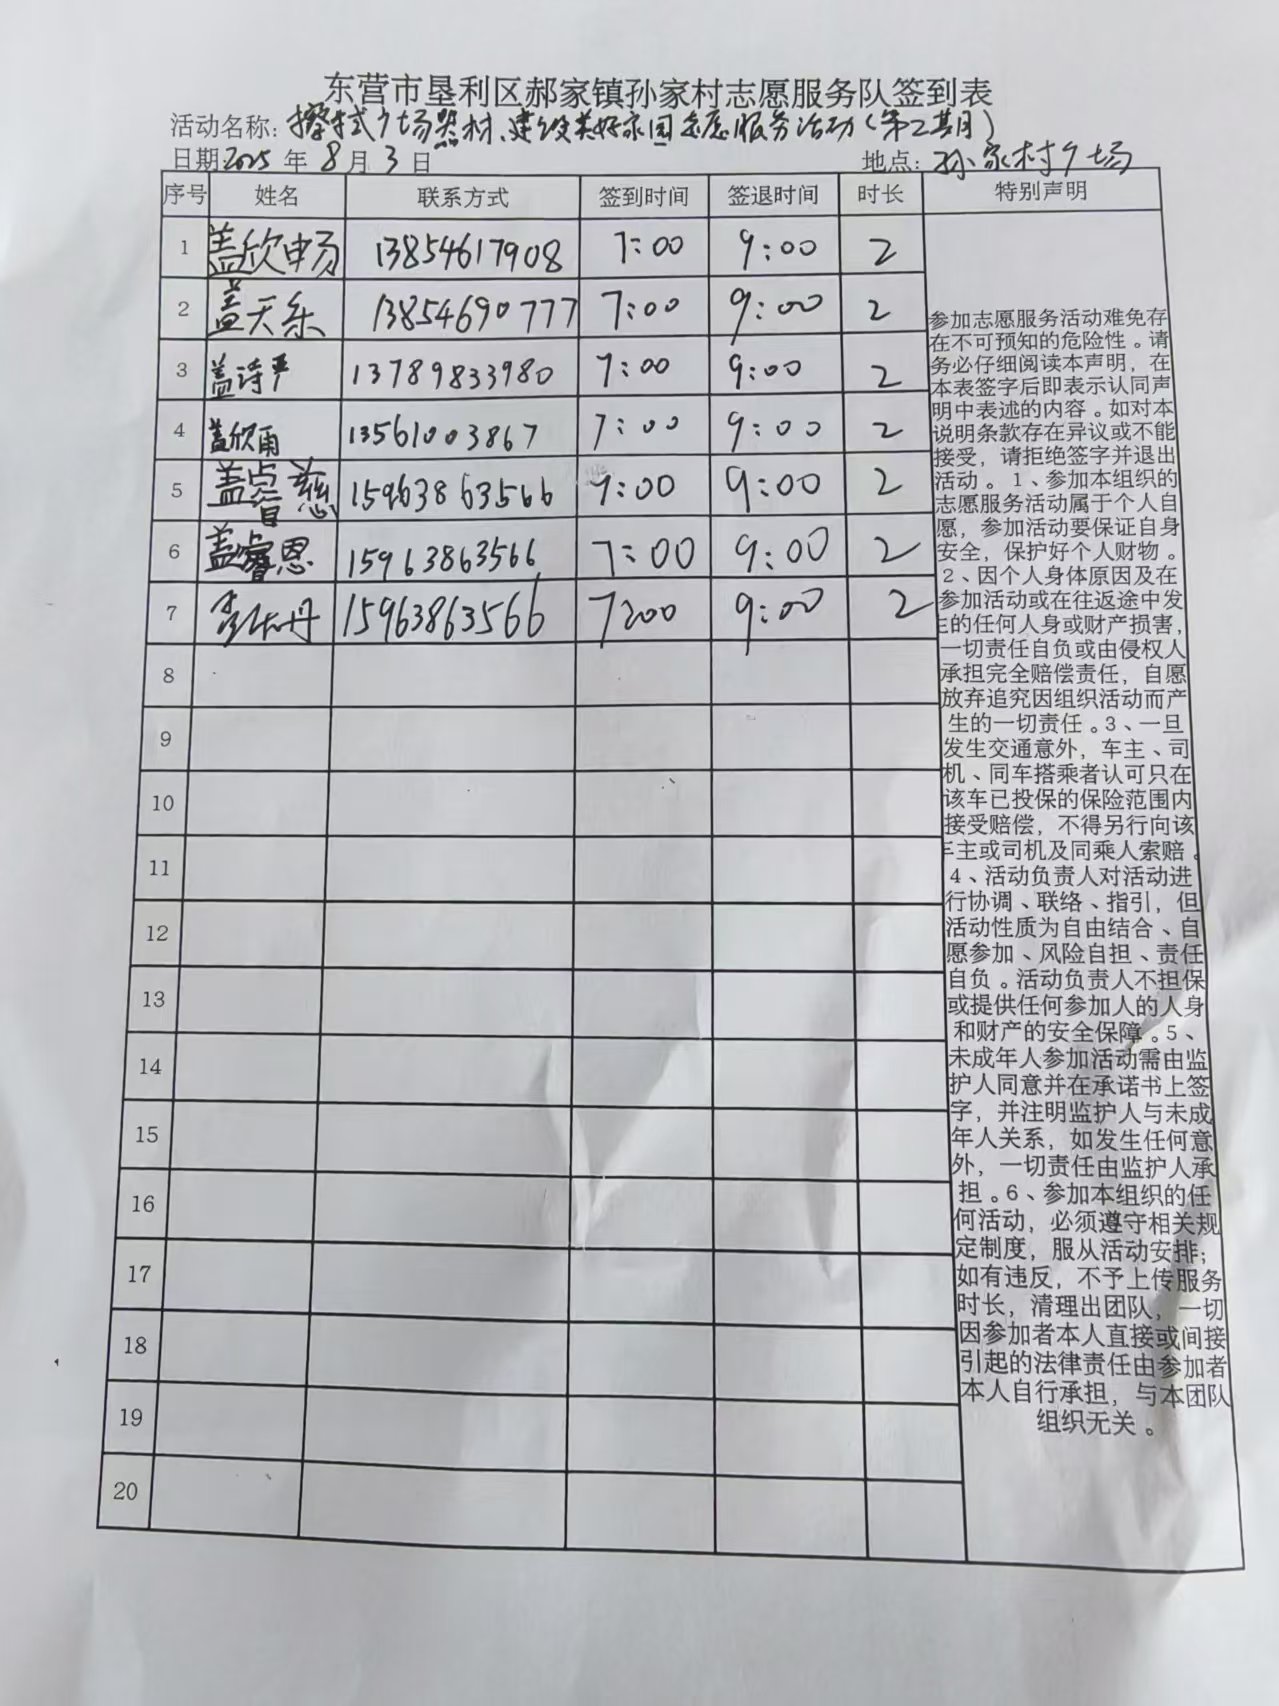 东营市垦利区郝家镇孙家村志愿服务队签到表
活动名称：擦拭广场器材、建设美好家园志愿服务活动（第二期）
日期2025年8月3日 地点：孙家村广场
序号 姓名 联系方式 签到时间 签退时间 时长 特别声明
1 盖欣畅 13854617908 7:00 9:00 2
2 盖天乐 13854690777 7:00 9:00 2
3 盖诗严 13789833980 7:00 9:00 2
4 盖欣雨 13561003867 7:00 9:00 2
5 盖睿慈 15963863566 7:00 9:00 2
6 盖睿恩 15963863566 7:00 9:00 2
7 丹 15963863566 7:00 9:00 2
8
9
10
11
12
13
14
15
16
17
18
19
20
参加志愿服务活动难免存
在不可预知的危险性。请
务必仔细阅读本声明，在
本表签字后即表示认同声
明中表述的内容。如对本
说明条款存在异议或不能
接受，请拒绝签字并退出
活动。1、参加本组织的
志愿服务活动属于个人自
愿，参加活动要保证自身
安全，保护好个人财物。
2、因个人身体原因及在
参加活动或在往返途中发
生的任何人身或财产损害，
一切责任自负或由侵权人
承担完全赔偿责任，自愿
放弃追究因组织活动而产
生的一切责任。3、一旦
发生交通意外，车主、司
机、同车搭乘者认可只在
该车已投保的保险范围内
接受赔偿，不得另行向该
车主或司机及同乘人索赔。
4、活动负责人对活动进
行协调、联络、指引，但
活动性质为自由结合、自
愿参加、风险自担、责任
自负。活动负责人不担保
或提供任何参加人的人身
和财产的安全保障。5、
未成年人参加活动需由监
护人同意并在承诺书上签
字，并注明监护人与未成
年人关系，如发生任何意
外，一切责任由监护人承
担。6、参加本组织的任
何活动，必须遵守相关规
定制度，服从活动安排；
如有违反，不予上传服务
时长，清理出团队，一切
因参加者本人直接或间接
引起的法律责任由参加者
本人自行承担，与本团队
组织无关。